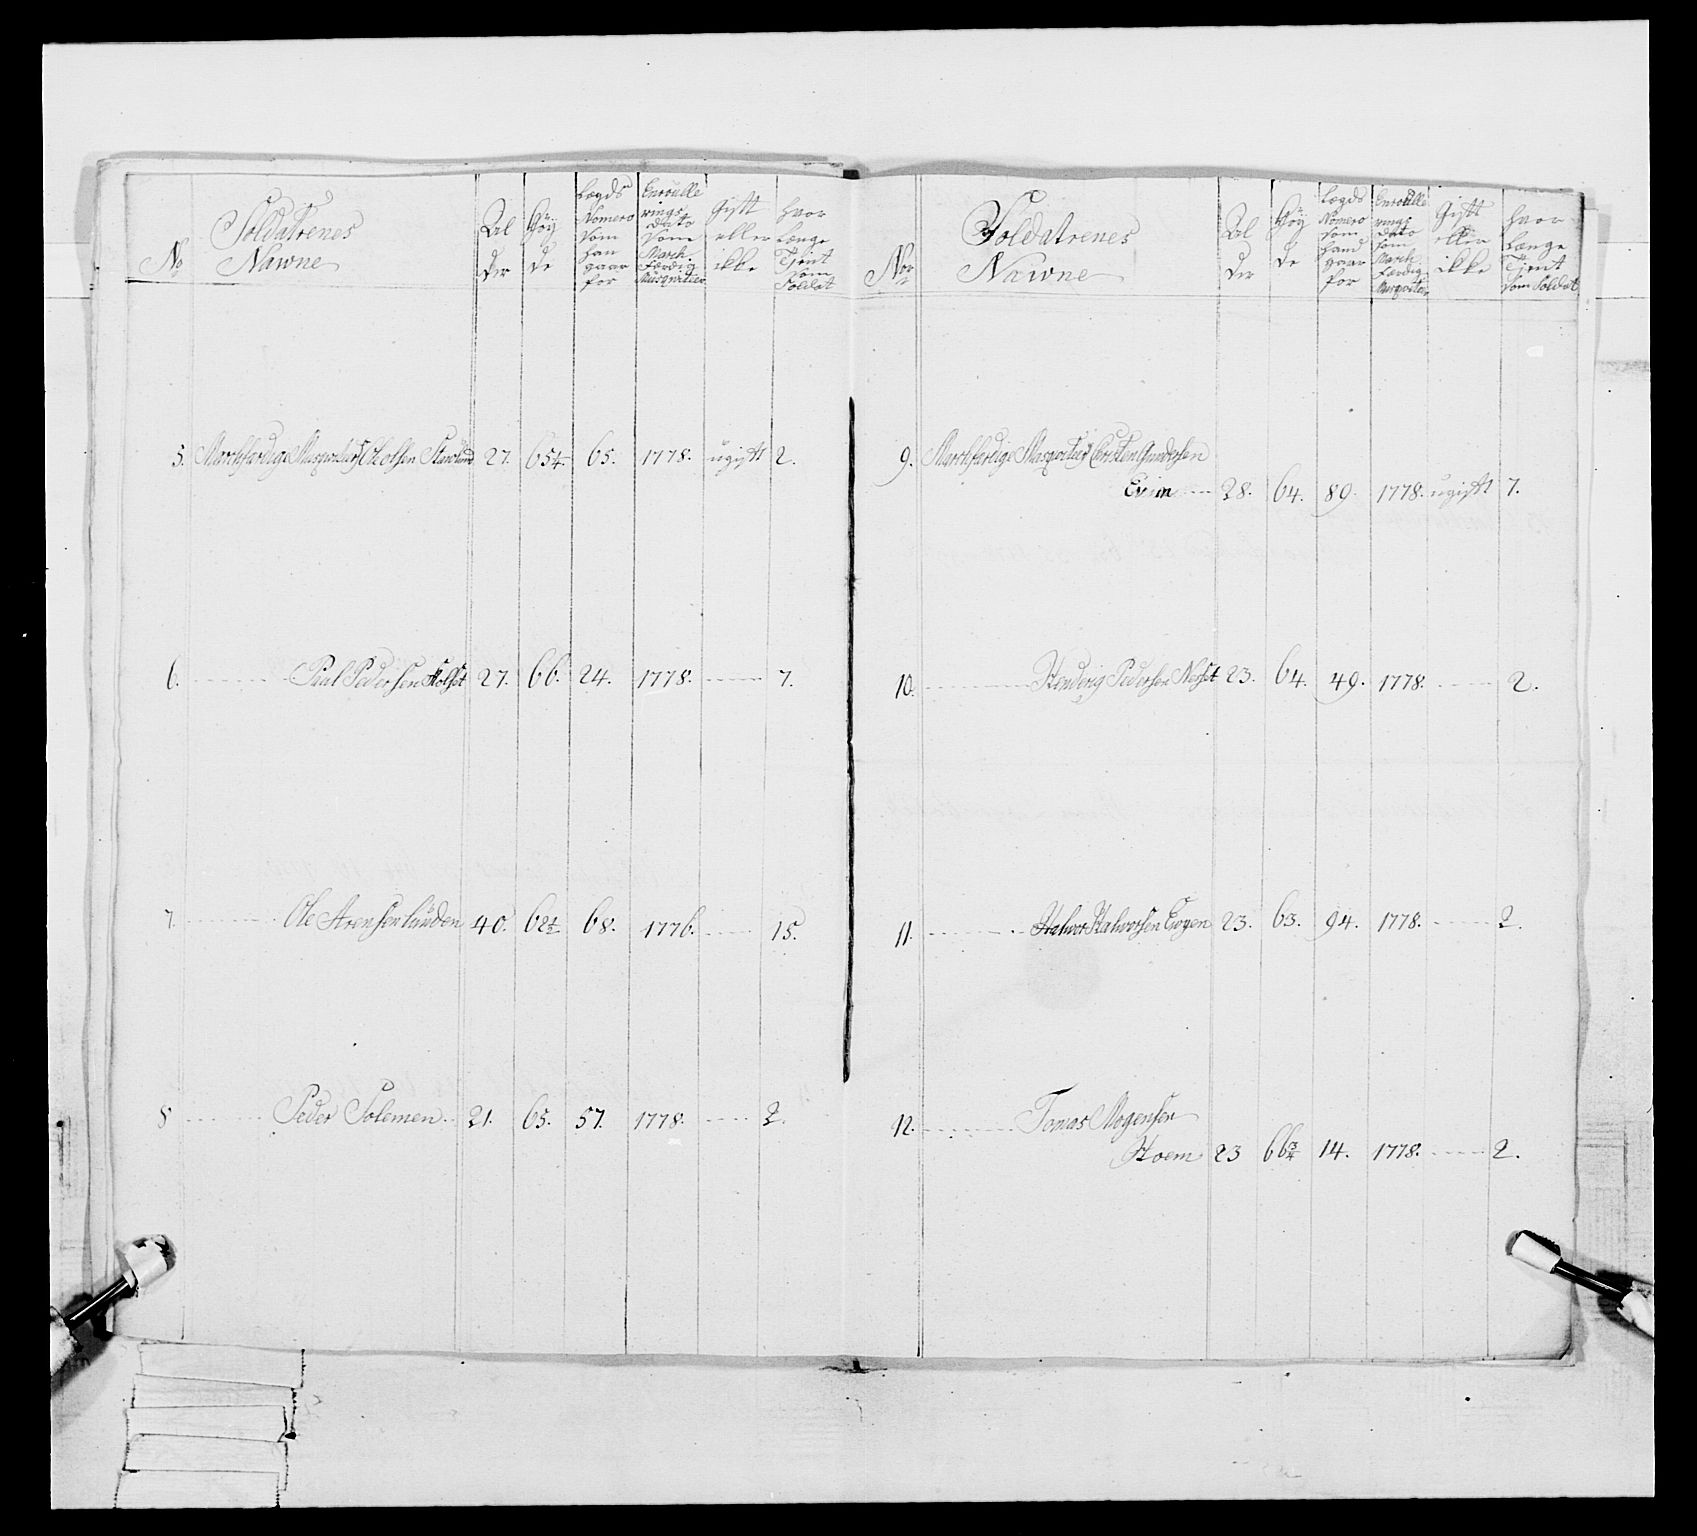 No
Soldatrenes Nawne
Al der
Höy de
Lægds Nomero som han gaar for
Enroulle rings Dato som March Færdig Musqvetier
Gift eller ikke
hvor længe Tjent som Soldat
5. Marchfærdige Musqvetier Ole Olsen 27. 65¼. 65. 1778. ugift 2.
6. Paul Pedersen 27. 66. 24. 1778. 7.
7. Ole Arensen Lunden 40. 62½ 68. 1776. 15.
8 Peder Solemen 21. 65. 57. 1778. 2.
Nor
Soldatrenes Nawne
Al der
Höy de
Lægds Nomero som hand gaar for
Enroulle rings Dato som March Færdig Musqvetier
Gift eller ikke
hvor længe Tjent som Soldat
9. Marchfærdige Musqvetier Cristen Gundersen
28. 64. 89. 1778. ugift 7.
10. Henderig Pedersen Neset 23. 64. 49. 1778. 2.
11. Halvor Halvorsen Eogen 23. 63. 94. 1778. 2.
12. Tomas Mogensen
Hoem 23 66¾ 14. 1778. 2.